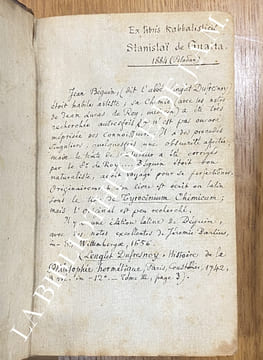 Ex libris Kabbalisticis
Stanislaï de Guaita
1884
Jean Béguin, (dit l'abbé Lenglet Dufresnoy)
étoit habile artiste, sa Chimie avec les notes
de Jean Lucas de Roy, médecin a été très
recherchée autrefois, & n'est pas encore
méprisée des connoisseurs. Il a des procédés
singuliers, quelquefois une obscurité affectée,
mais le texte de l'Auteur a été corrigé
par le Sr de Roy. Béguin étoit bon
naturaliste, avoit voyagé pour se perfectionner.
Originairement son livre est écrit en latin
sous le titre de Tyrocinium Chimicum;
mais l'original est peu recherché.
Il y a une édition latine de Béguin,
avec des notes excellentes de Jérémie Barthius
in-8° Wittenbergæ, 1656.
(Lenglet Dufresnoy. Histoire de la
Philosophie hermétique, Paris, Coustelier, 1742,
3 vol. in-12. Tome III, page